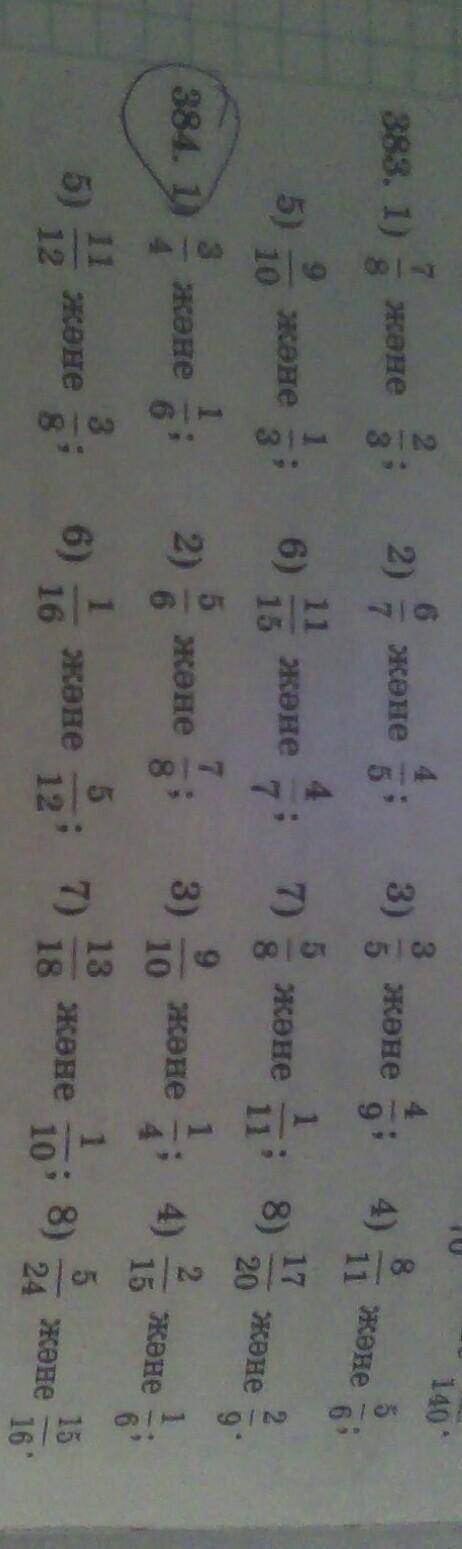 140.
383. 1) 7/8 және 2/3; 2) 6/7 және 4/5; 3) 3/5 және 4/9; 4) 8/11 және 5/6;
5) 9/10 және 1/3; 6) 11/15 және 4/7; 7) 5/8 және 1/11; 8) 17/20 және 2/9.
384. 1) 3/4 және 1/6; 2) 5/6 және 7/8; 3) 9/10 және 1/4; 4) 2/15 және 1/6;
5) 11/12 және 3/8; 6) 1/16 және 5/12; 7) 13/18 және 1/10; 8) 5/24 және 15/16.